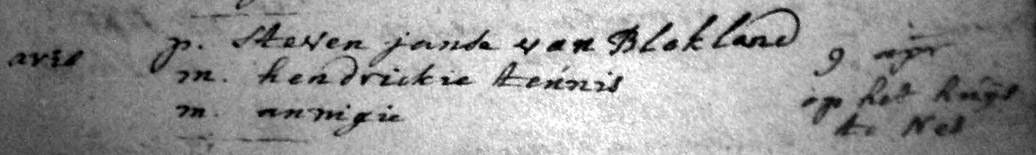 p. Steven janse van Blokland
arie
m. hendrickie tennis
m. annigie
9 apr
op het huijs
te Nes